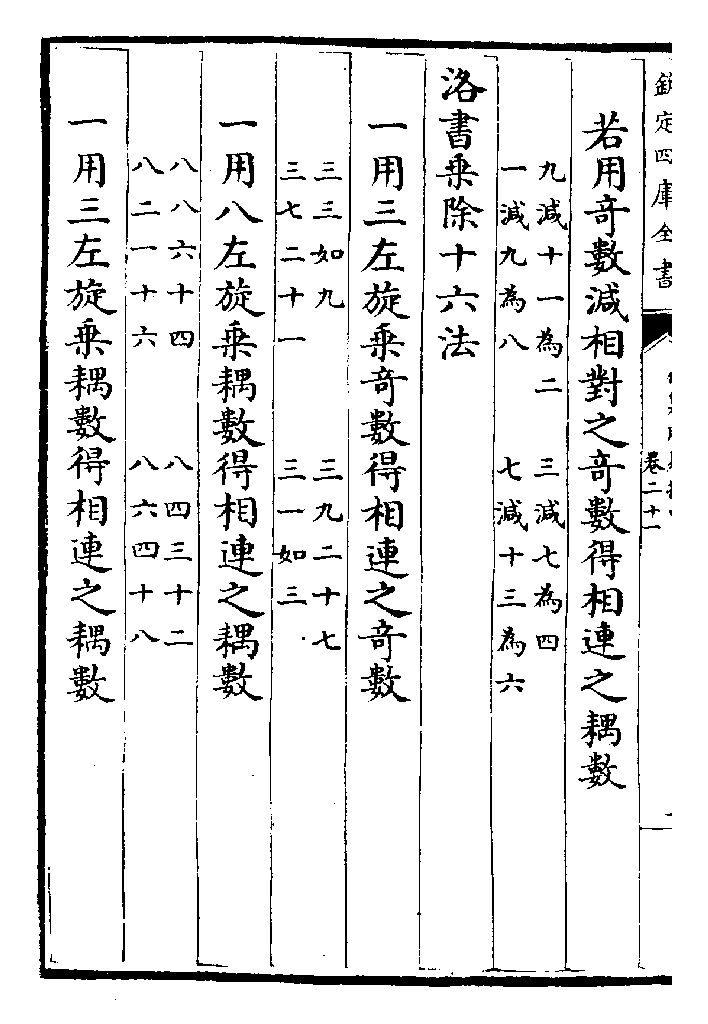 欽定四庫全書
卷二十一
若用竒數減相對之竒數得相連之耦數
九減十一為二　三減七為四
一減九為八　七減十三為六
洛書乗除十六法
一用三左旋乗竒數得相連之竒數
三三如九　三九二十七
三七二十一　三一如三
一用八左旋乗耦數得相連之耦數
八八六十四　八四三十二
八二一十六　八六四十八
一用三左旋乗耦數得相連之耦數